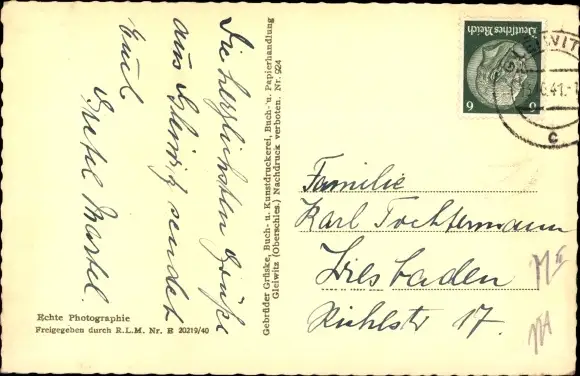 Die herzlichsten Grüße
aus Gleiwitz sendet
Euch
Gretel Martel.
Echte Photographie
Freigegeben durch R.L.M. Nr. E 20219/40
Gebrüder Grüske, Buch- u. Kunstdruckerei, Buch- u. Papierhandlung
Gleiwitz (Oberschles.) Nachdruck verboten. Nr. 924
Deutsches Reich
6 6
GLEIWITZ
6.41.-1
c
Familie
Karl Tochtermann
Wiesbaden
Riehlstr 17.